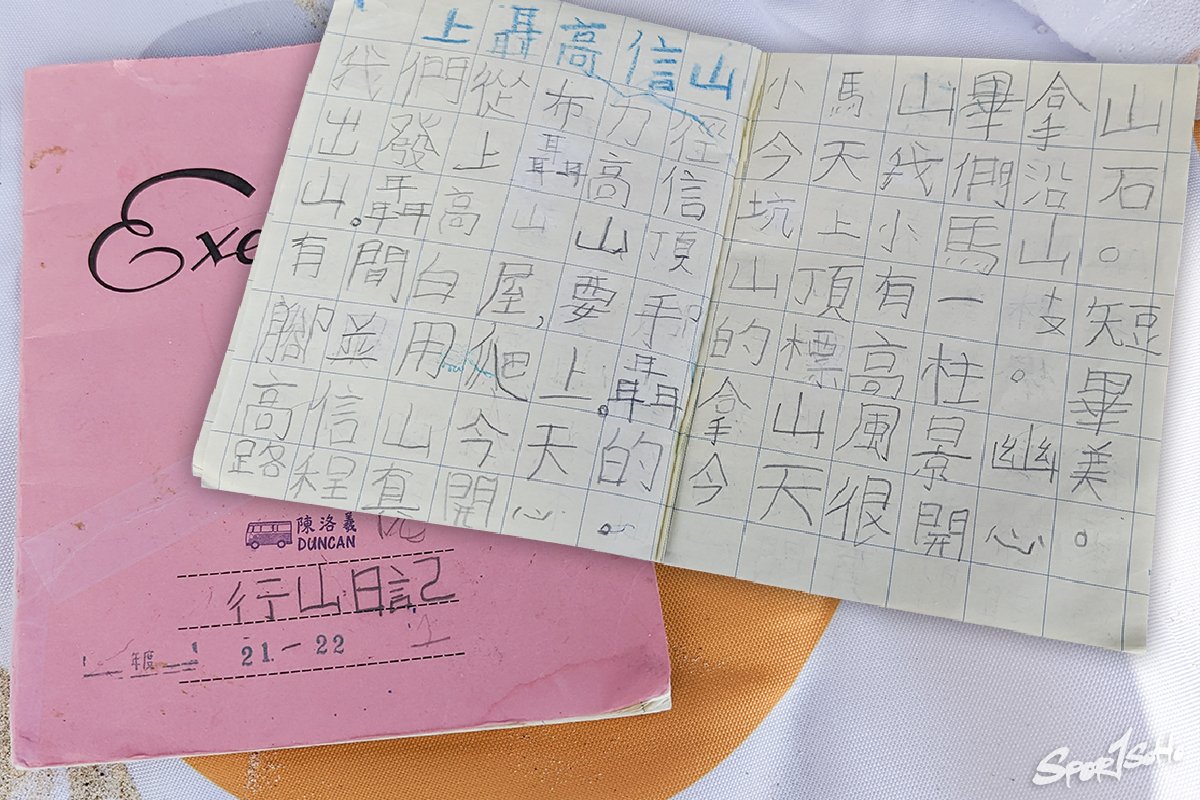 上聶高信山
我們從布力徑
出發上聶高信
山。聶高山山頂
有間白屋,要手
腳並用爬上。聶
高信山今天的
路程真開心。
小馬山畢拿山
今天我們沿石
坑上小馬山。
山頂有一枝短
的標高柱。畢
拿山風景幽美
今天很開心。
Exe
陳洛羲
DUNCAN
行山日記
年度 21-22 上
SPORTSOHO